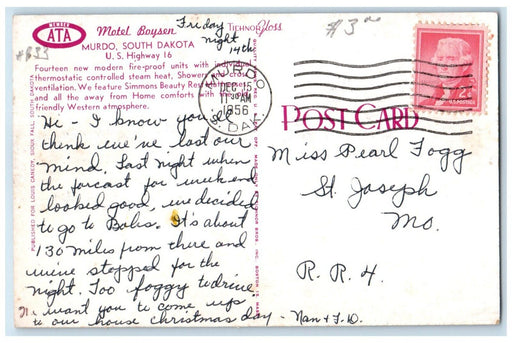 MEMBER
ATA
Motel Boysen
MURDO, SOUTH DAKOTA
U. S. Highway 16
Fourteen new modern fire-proof units with individual
thermostatic controlled steam heat, Showers and cross
ventilation. We feature Simmons Beauty Rest
and all the away from Home comforts with
friendly Western atmosphere.
TICHNOR Gloss
Friday
night
14th
$3.00
MURDO
DEC 15
11 AM
1956
S. DAK.
2¢
U.S. POSTAGE
POST CARD
Hi - I know you'll
think we've lost our
mind. Last night when
the forcast for weekend
looked good, we decided
to go to Bobs. It's about
130 miles from there and
we've stopped for the
night. Too foggy to drive.
We want you to come up
to our house Christmas day - Nan + J.D.
Miss Pearl Fogg
St. Joseph
Mo.
R.R. 4.
PUBLISHED FOR LOUIS CANEDY, SIOUX FALLS, SOUTH DAKOTA